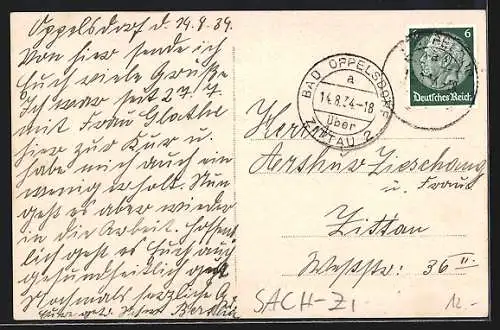 Oppelsdorf d. 14.8.34.
Von hier sende ich
Euch viele Grüße
Ich war seit 27/7
mit Frau Glathe
hier zur Kur u.
habe mich auch ein
wenig erholt. Nun
geht es aber wieder
in die Arbeit. Hoffent
lich geht es Euch auch
gesundheitlich gut
Nochmals herzliche Gr.
BAD OPPELSDORF
a
14.8.34-18
über
ZITTAU 2
6
Deutsches Reich
Herrn
Arthur Zieschang
u. Frau
Zittau
Weststr: 36 II.
SACH-ZI
12.-